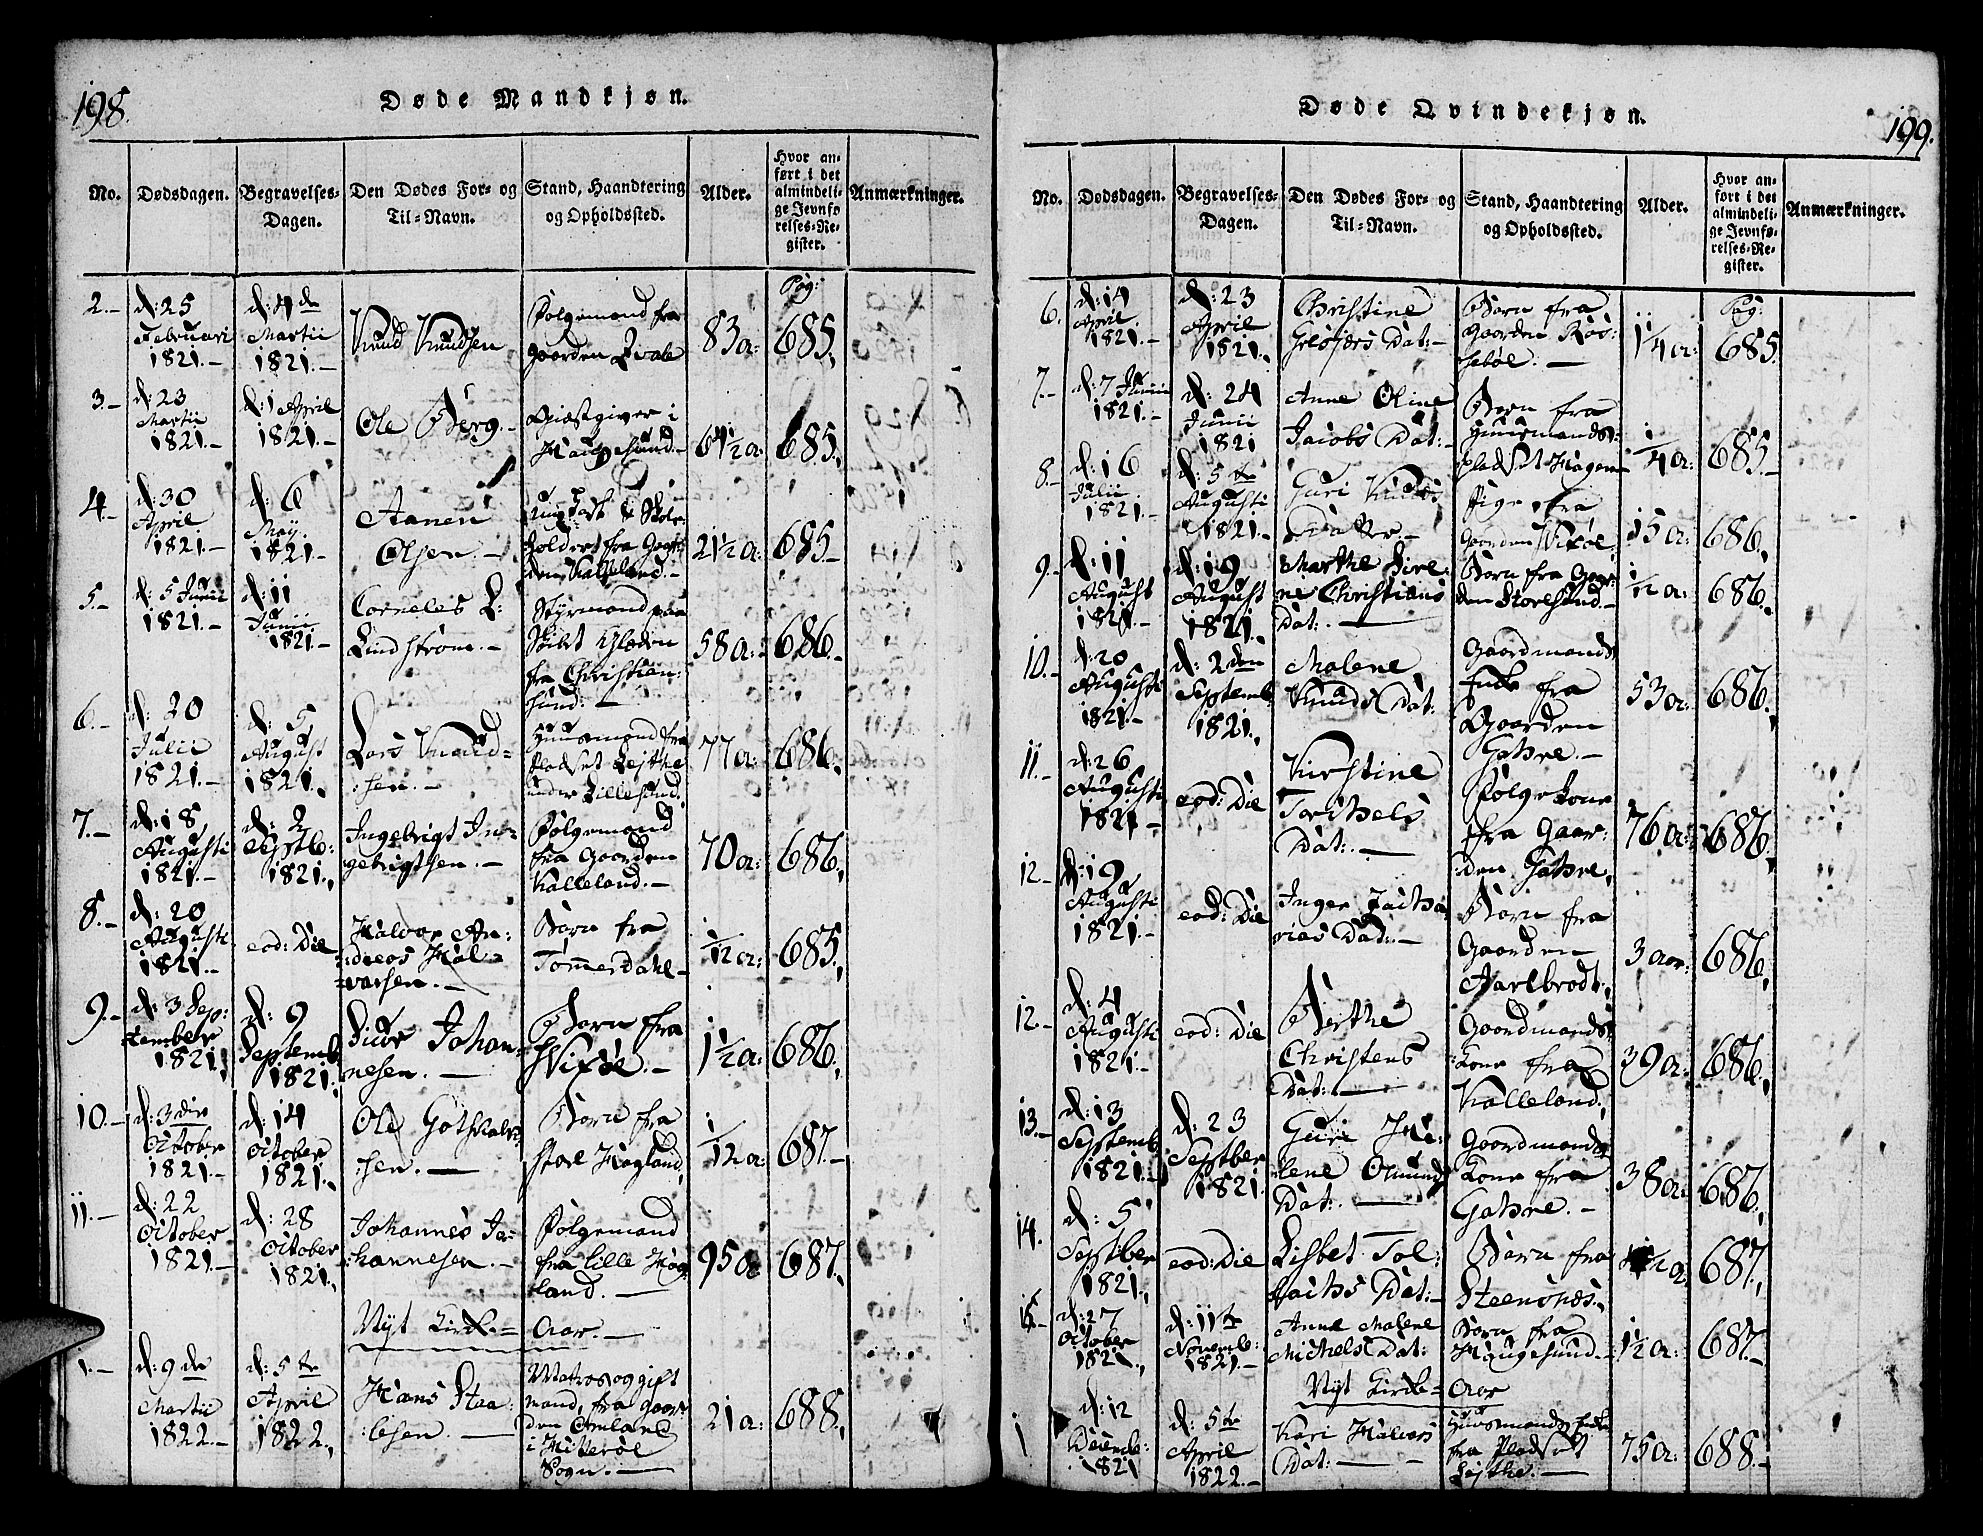 198.
Døde Mandkjøn.
No.
Dødsdagen.
Begravelses-
Dagen.
Den Dødes For- og
Til-Navn.
Stand, Haandtering
og Opholdssted.
Alder.
Hvor an-
ført i det
almindeli-
ge Jevnfø-
relses-Re-
gister.
Anmærkninger.
Pag:
2.-
d: 25
Februari
1821.-
d: 4de
Martii
1821.-
Knud Knudsen
Følgemand fra
Gaarden Qvale
83 a:
685.
3.-
d: 23
Martii
1821.-
d: 1 April
1821.-
Ole Berg.-
Giæstgiver i
Haugesund.-
64½ a:
685.
4.-
d: 30
April
1821.-
d: 6
May.
1821.-
Aanen
Olsen.-
holder fra Gaar-
den Kalleland.-
21½ a:
685-
5.-
d: 5 Junii
1821.-
d: 11
Junii
1821.-
Corneles L:
Lindstrøm.-
Styrmand paa
Skibet
fra Christian:
sund:-
58 a:
686.-
6.-
d: 20
Julii
1821.-
d: 5
August
1821.
Lars Knud-
:sen.-
Huusmand fra
Pladset Lejthe
under Lillesund.
77 a:
686.
7.-
d: 18
Augusti
1821.-
d: 2
Septb:
1821.
Ingebrigt In-
gebrigtsen.-
Følgemand
fra Gaarden
Kalleland.-
70 a:
686.
8.-
d: 20
Augusti
1821.-
eod: Die
Halvor An:
dreas Hal-
vorsen.-
Barn fra
Tømmerdahl-
1/12 a:
685.
9.-
d: 3 Sep:
tember
1821.
d: 9
Septemb
1821.
Siver Johan-
nesen.-
Barn fra
Vixøe.-
1½ a:
686.
10.-
d: 3die
October
1821.-
d: 14
October
1821.
Ole Gothskalk
:sen.-
Barn fra
store Hagland,
1/12 a:
687.-
11.-
d: 22
October
1821.-
d: 28
October
1821.
Johannes Jo:
:hannesen.-
Følgemand
fra lille Hag
land.-
95 a:
687.
Nyt Kirke-Aar.-
1.-
d: 9de
Martii
1822.-
d: 5te
April
1822.
Hans Staa:
:lesen.-
Matros og gift
mand, fra Gaar
den Amland
i Hitterøe
Sogn.-
21 a:
688.
199.
Døde Qvindekjøn.
No.
Dødsdagen.
Begravelses-
Dagen.
Den Dødes For- og
Til-Navn.
Stand, Haandtering
og Opholdssted.
Alder.
Hvor an-
ført i det
almindeli-
ge Jevnfø-
relses-Re-
gister.
Anmærkninger.
Pag:
6.
d: 14
April
1821.-
d: 23
April
1821.
Christine
Gresjers Dat:-
Barn fra
Gaarden Ros:
sebøe.-
1/4 a:
685.
7.-
d: 7 Junii
1821.-
d: 24
Junii
1821
Anne Oline
Jacobs Dat:-
Barn fra
Huusmands:
pladset Hagen-
1/4 a:
685-
8.-
d: 16
Julii
1821.-
d: 5te
Augusti
1821.-
Guri Knuds
Datter-
Pige fra
Gaarden Vixøe.
15 a:
686.
9.-
d: 11
August
1821.-
d: 19
August
1821.
Marthe Sire:
ne Christians
Dat:-
Barn fra Gaar-
den Storesund.-
1/12 a:
686.
10.-
d: 20
Augusti
1821.-
d: 2den
Septemb
1821.
Malene
Knuds Dat:
Gaardmands
Enke fra
Gaarden
Gahre.-
53 a:
686.
11.-
d: 26
Augusti
1821.-
eod: Die
Kirstine
Torchels
Dat:-
Følgekone
fra Gaar:
:den Gahre.
76 a:
686.
12.-
d: 19
Augusti
1821.-
eod: Die
Inger Zacha
rias Dat:-
Barn fra
Gaarden
Aarlbrodt.
3 aar:
686.
12.-
d: 4
Augusti
1821.-
eod: Die
Berthe
Christens
Dat:-
Gaardmands
:kone fra
Kalleland.
39 a:
686.
13.-
d: 13
Septemb
1821.-
d: 23
Septber
1821.
Guri He:
lene Omunds
Dat:-
Gaardmands
kone fra
Gahre.-
38 a:
686.
14.
d: 5
Septber
1821.
eod: Die
Lisbet Tol:
:lachs Dat:-
Barn fra
Steensnes.
1/2 a:
687.
15.-
d: 27
October
1821.
d: 11te
Novemb:
1821.-
Anne Malene
Michels Dat:-
Barn fra
Haugesund.-
1½ a:
687.-
Nyt Kirke-Aar
1
d: 12
Decemb:
1821
d: 5te
April
1822.-
Kari Halvors
Dat:-
Huusmands Enke
fra Pladset
Lejthe.-
75 a:
688.-